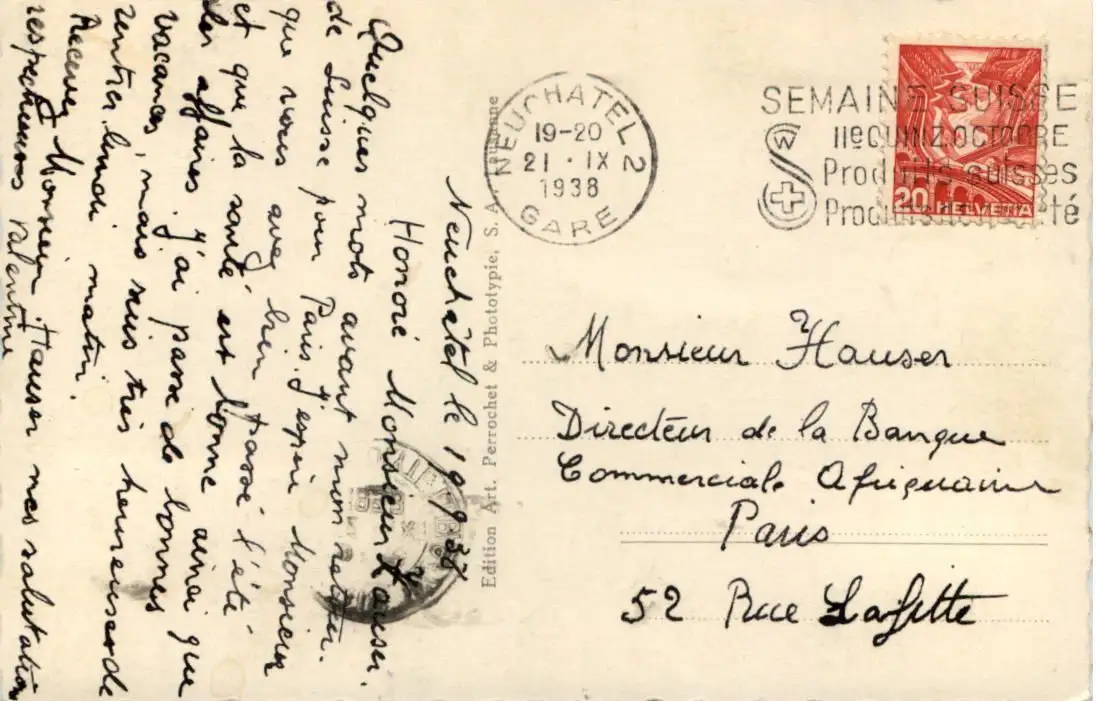 Neuchâtel le 19.9.38
Honoré Monsieur Hauser.
Quelques mots avant mon retour
de Suisse pour Paris. J'espère Monsieur
que vous avez bien passé l'été
et que la santé est bonne ainsi que
les affaires. j'ai passé de bonnes
vacances, mais suis très heureuse de
rentrer lundi matin.
Recevez Monsieur Hauser mes salutations
respectueuses Valentine
Edition Art. Perrochet & Phototypie, S. A., Lausanne
NEUCHATEL 2
19-20
21 · IX
1938
GARE
SEMAINE SUISSE
IIe QUINZ. OCTOBRE
Produits suisses
Produits
20 HELVETIA
Monsieur Hauser
Directeur de la Banque
Commerciale Africaine
Paris
52 Rue Lafitte